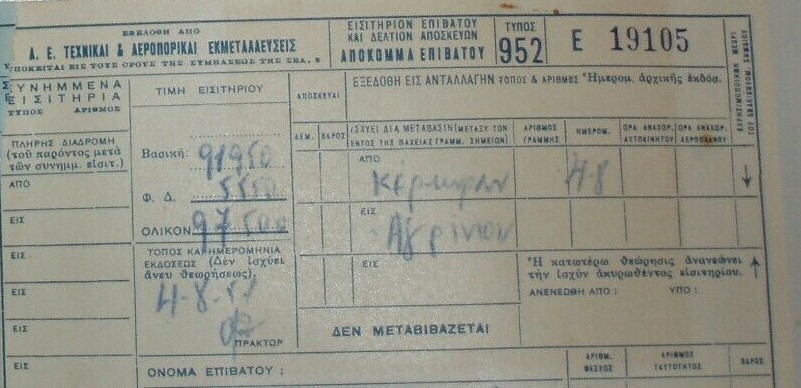 ΕΞΕΔΟΘΗ ΑΠΟ
Α. Ε. ΤΕΧΝΙΚΑΙ & ΑΕΡΟΠΟΡΙΚΑΙ ΕΚΜΕΤΑΛΛΕΥΣΕΙΣ
ΥΠΟΚΕΙΤΑΙ ΕΙΣ ΤΟΥΣ ΟΡΟΥΣ ΤΗΣ ΣΥΜΒΑΣΕΩΣ ΤΗΣ ΣΕΛ.
ΕΙΣΙΤΗΡΙΟΝ ΕΠΙΒΑΤΟΥ
ΚΑΙ ΔΕΛΤΙΟΝ ΑΠΟΣΚΕΥΩΝ
ΑΠΟΚΟΜΜΑ ΕΠΙΒΑΤΟΥ
ΤΥΠΟΣ
952
Ε 19105
ΣΥΝΗΜΜΕΝΑ
ΕΙΣΙΤΗΡΙΑ
ΤΥΠΟΣ ΑΡΙΘΜΟΣ
ΠΛΗΡΗΣ ΔΙΑΔΡΟΜΗ
(τοῦ παρόντος μετὰ
τῶν συνημμ. εἰσιτ.)
ΑΠΟ
ΕΙΣ
ΕΙΣ
ΕΙΣ
ΕΙΣ
ΕΙΣ
ΤΙΜΗ ΕΙΣΙΤΗΡΙΟΥ
Βασική: 91950
Φ. Δ. 5550
ΟΛΙΚΟΝ 97500
ΤΟΠΟΣ ΚΑΙ ΗΜΕΡΟΜΗΝΙΑ
ΕΚΔΟΣΕΩΣ (Δὲν ἰσχύει
ἄνευ θεωρήσεως).
4-8-51
ΠΡΑΚΤΩΡ
ΑΠΟΣΚΕΥΑΙ
ΔΕΜ. ΒΑΡΟΣ
ΕΞΕΔΟΘΗ ΕΙΣ ΑΝΤΑΛΛΑΓΗΝ ΤΟΠΟΣ & ΑΡΙΘΜΟΣ Ἡμερομ. ἀρχικῆς ἐκδόσ.
ΙΣΧΥΕΙ ΔΙΑ ΜΕΤΑΒΑΣΙΝ (ΜΕΤΑΞΥ ΤΩΝ
ΕΝΤΟΣ ΤΗΣ ΠΑΧΕΙΑΣ ΓΡΑΜΜ. ΣΗΜΕΙΩΝ)
ΑΡΙΘΜΟΣ
ΓΡΑΜΜΗΣ
ΗΜΕΡΟΜ.
ΩΡΑ ΑΝΑΧΩΡ.
ΑΥΤΟΚΙΝΗΤΟΥ
ΩΡΑ ΑΝΑΧΩΡ.
ΑΕΡΟΠΛΑΝΟΥ
ΑΠΟ
Κέρκυραν 4-8
ΕΙΣ
Αγρίνιον
ΕΙΣ
Ἡ κατωτέρω θεώρησις ἀνανεώνει
τὴν ἰσχὺν ἀκυρωθέντος εἰσιτηρίου.
ΑΝΕΝΕΩΘΗ ΑΠΟ : ΥΠΟ :
ΔΕΝ ΜΕΤΑΒΙΒΑΖΕΤΑΙ
ΟΝΟΜΑ ΕΠΙΒΑΤΟΥ :
ΑΡΙΘΜ.
ΘΕΣΕΩΣ
ΑΡΙΘΜΟΣ
ΤΑΥΤΟΤΗΤΟΣ
ΒΑΡΟΣ